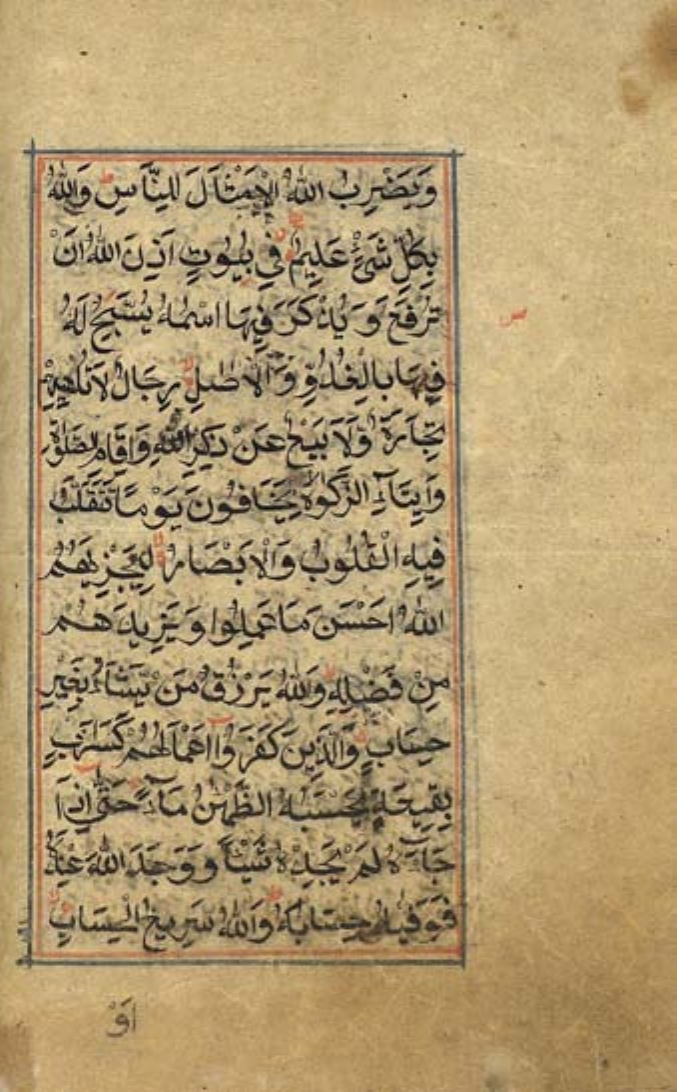 وَيَضْرِبُ اللهُ الْاَمْثَالَ لِلنَّاسِ وَاللهُ
بِكُلِّ شَیْءٍ عَلِيمٌ فِي بُيُوتٍ اَذِنَ اللهُ اَنْ
تُرْفَعَ وَيُذْكَرَ فِيهَا اسْمُهُ يُسَبِّحُ لَهُ
فِيهَا بِالْغُدُوِّ وَالْاٰصَالِ رِجَالٌ لَا تُلْهِيهِمْ
تِجَارَةٌ وَلَا بَيْعٌ عَنْ ذِكْرِ اللهِ وَاِقَامِ الصَّلٰوةِ
وَاِيتَآءِ الزَّكٰوةِ يَخَافُونَ يَوْمًا تَتَقَلَّبُ
فِيهِ الْقُلُوبُ وَالْاَبْصَارُ لِيَجْزِيَهُمُ
اللهُ اَحْسَنَ مَا عَمِلُوا وَيَزِيدَهُمْ
مِنْ فَضْلِهِ وَاللهُ يَرْزُقُ مَنْ يَشَآءُ بِغَيْرِ
حِسَابٍ وَالَّذِينَ كَفَرُوا اَعْمَالُهُمْ كَسَرَابٍ
بِقِيعَةٍ يَحْسَبُهُ الظَّمْاٰنُ مَآءً حَتّٰى اِذَا
جَآءَهُ لَمْ يَجِدْهُ شَيْئًا وَوَجَدَ اللهَ عِنْدَهُ
فَوَفّٰيهُ حِسَابَهُ وَاللهُ سَرِيعُ الْحِسَابِ
اَوْ